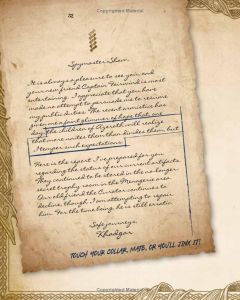 Spymaster Shaw,
It is always a pleasure to see you and
your new friend Captain Fairwind is most
entertaining. I appreciate that you have
made no attempt to persuade me to resume
my public duties. The recent armistice has
given me a faint glimmer of hope that one
day, the children of Azeroth will realize
that more unites them than divides them, but
I temper such expectations.
Here is the report I've prepared for you
regarding the status of our current artifacts.
They continued to be stored in the no-longer-
secret trophy room in the Menagerie area.
Our old friend the Curator continues to
decline, though I am attempting to repair
him. For the time being, he is still erratic.
Safe journeys,
Khadgar
TOUCH YOUR COLLAR, MATE, OR YOU'LL JINX IT!